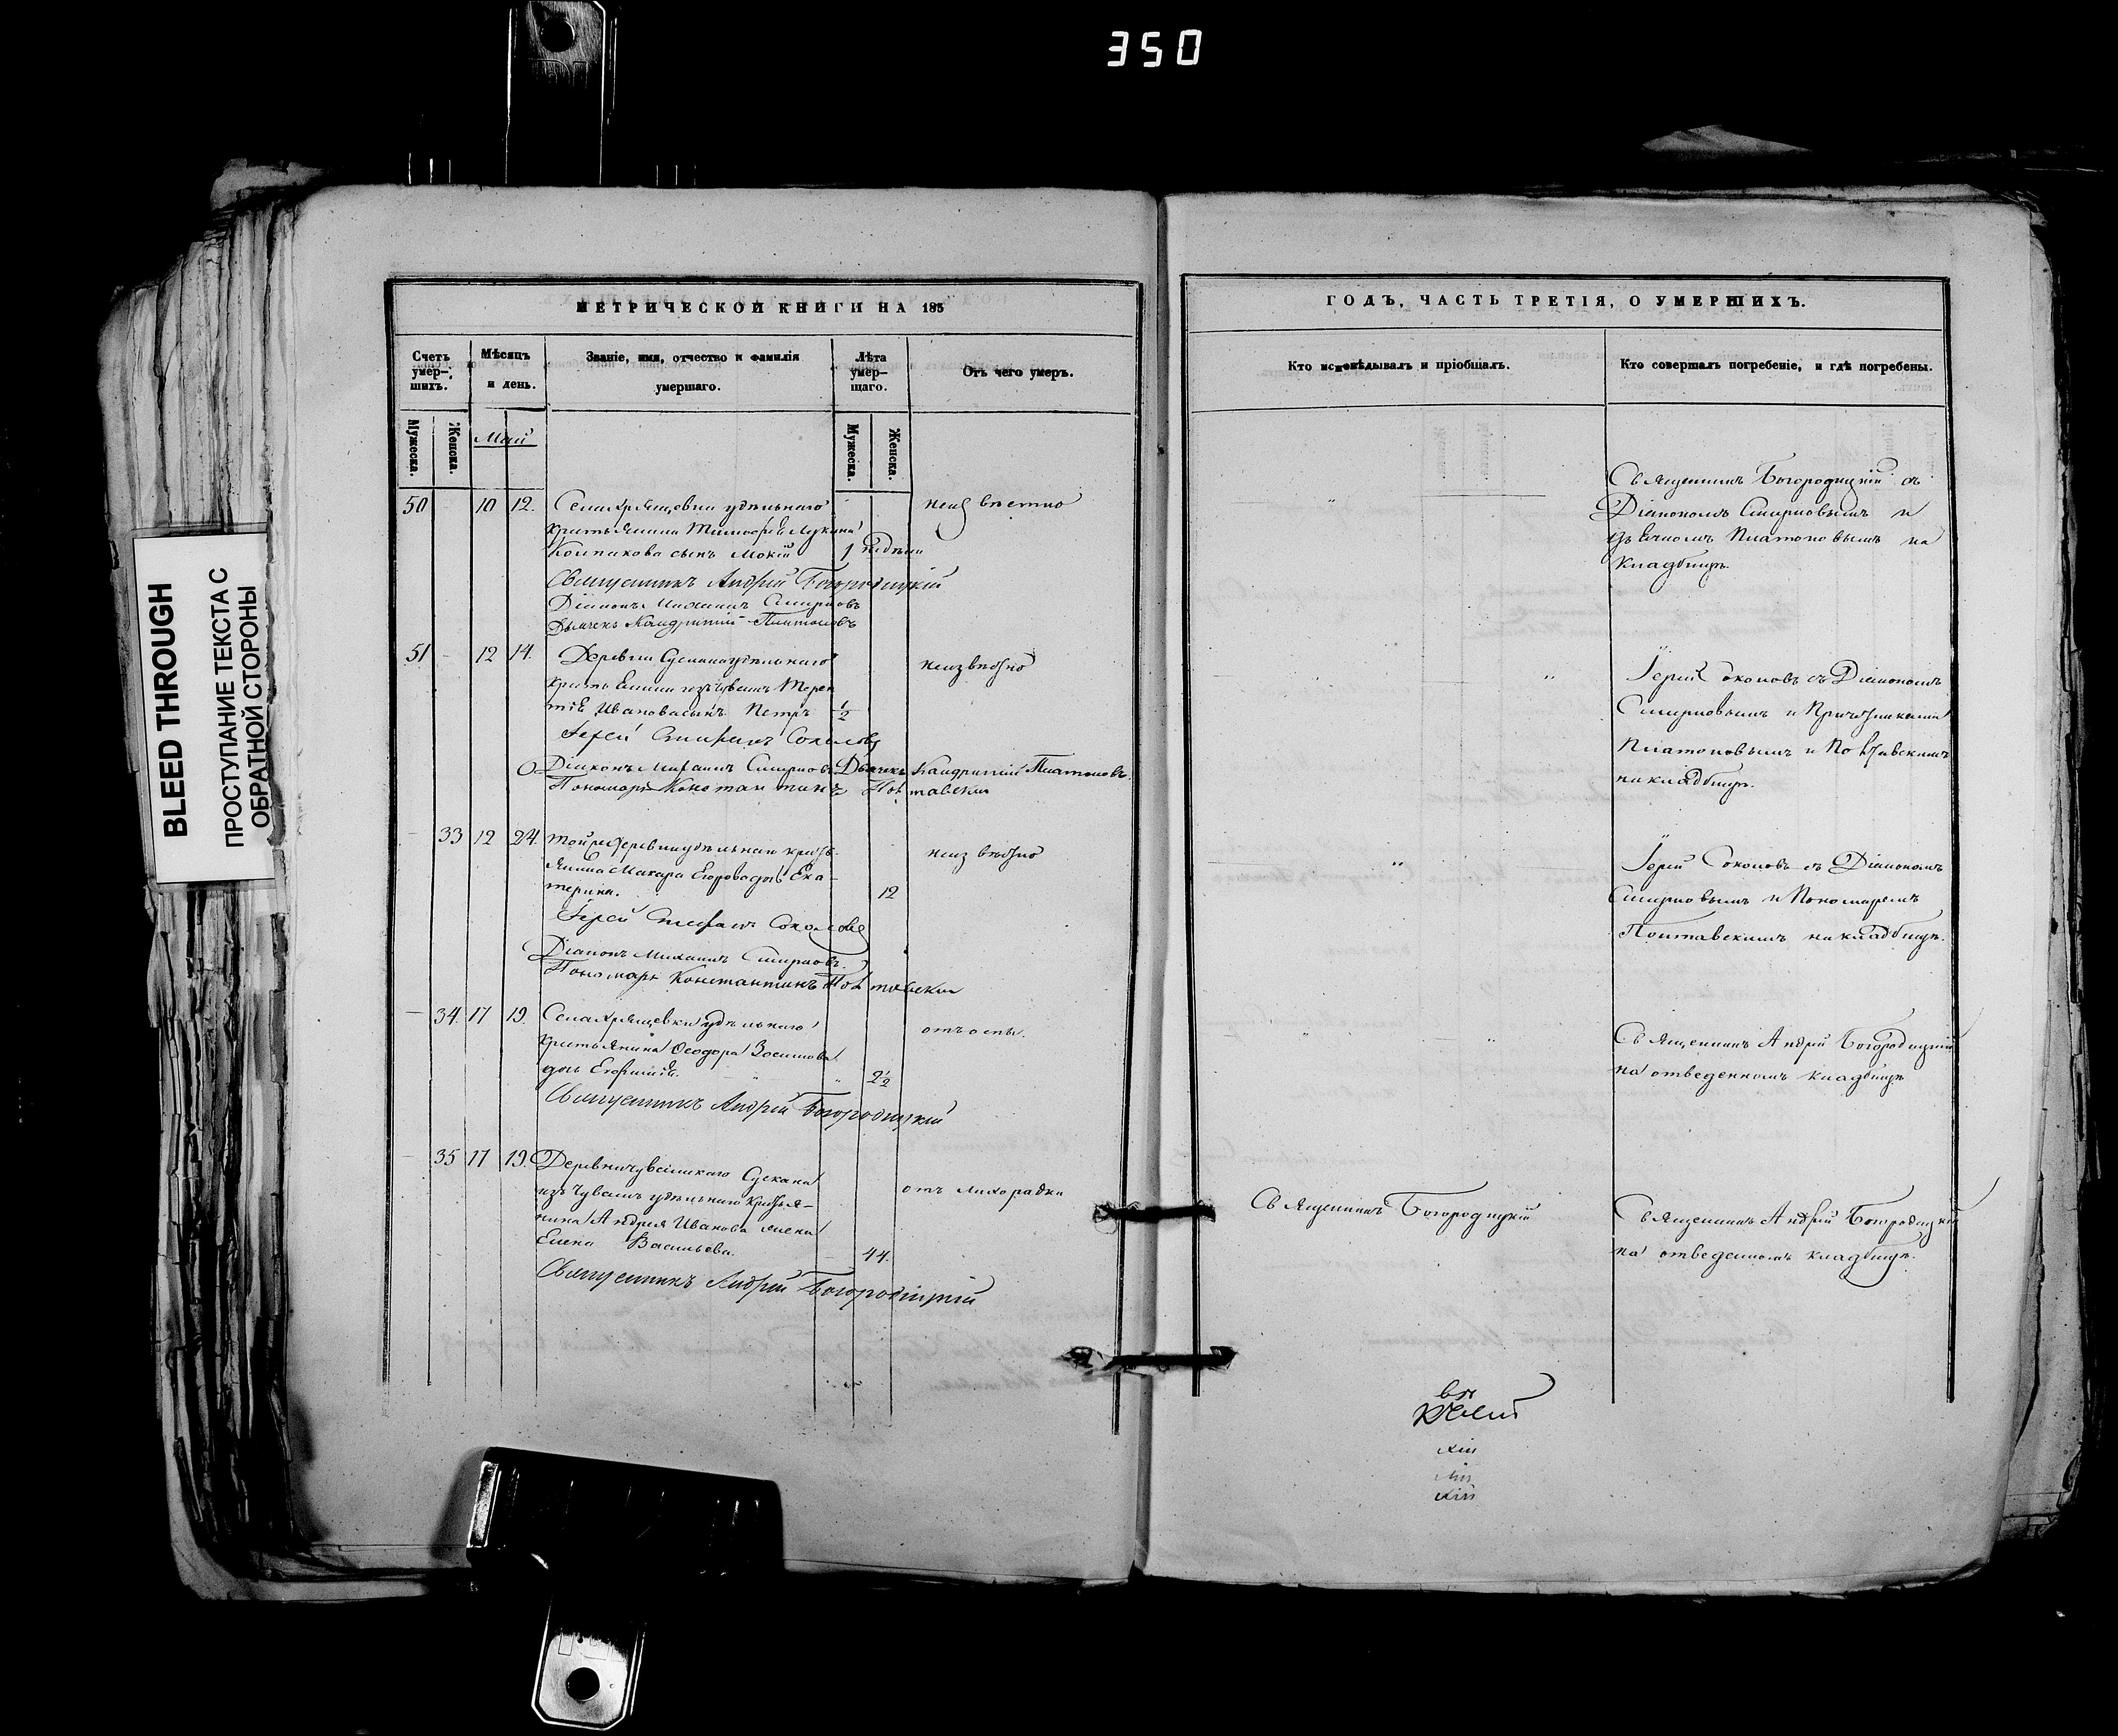 350
BLEED THROUGH
ПРОСТУПАНИЕ ТЕКСТА С
ОБРАТНОЙ СТОРОНЫ
МЕТРИЧЕСКОЙ КНИГИ НА 185
Счетъ умер-шихъ.
Мѣсяцъ и день.
Званіе, имя, отчество и фамилія умершаго.
Лѣта умер-щаго.
Отъ чего умеръ.
Мужеска.
Женска.
Май
Мужеска.
Женска.
50 10 12. Села Хрящевки удѣльнаго неизвѣстно
крестьянина Тимофея Лукина
Колпакова сынъ Мокій 1 недѣли
Священникъ Андрей Богородицкій
Діаконъ Михаилъ Смирновъ
Дьячекъ Платоновъ
51 - 12 14. Деревни Сускана удѣльнаго неизвѣстно
крестьянина изъ чувашъ Терен
тія Иванова сынъ Петръ 1/2
Іерей Стефанъ Соколовъ
Діаконъ Михаилъ Смирновъ Дьячекъ Платоновъ
Пономарь Константинъ Полтавскій
- 33 12 24. той же деревни удѣльнаго кресть- неизвѣстно
янина Макара Егорова дочь Ека-
терина. 12
Іерей Стефанъ Соколовъ
Діаконъ Михаилъ Смирновъ.
Пономарь Константинъ Полтавскій
- 34. 17 19. Села Хрящевки удѣльнаго отъ оспы.
крестьянина Ѳеодора Зосимова
дочь Евфимія. " " 2 1/2
Священникъ Андрей Богородицкій
- 35 17 19. Деревни чувашскаго Сускана отъ лихорадки
изъ чувашъ удѣльнаго кресть-я-
нина Андрея Иванова жена
Елена Васильева. 44.
Священникъ Андрей Богородицкій
ГОДЪ, ЧАСТЬ ТРЕТІЯ, О УМЕРШИХЪ.
Кто исповѣдывалъ и пріобщалъ.
Кто совершалъ погребеніе, и гдѣ погребены.
Священникъ Богородицкій съ
Діакономъ Смирновымъ и
дьячкомъ Платоновымъ на
кладбищѣ.
Іерей Соколовъ съ Діакономъ
Смирновымъ и Причетниками
Платоновымъ и Полтавскимъ
на кладбищѣ.
Іерей Соколовъ съ Діакономъ
Смирновымъ и Пономаремъ
Полтавскимъ на кладбищѣ.
Священникъ Андрей Богородицкій
на отведенномъ кладбищѣ
Священникъ Богородицкій
Священникъ Андрей Богородицкій
на отведенномъ кладбищѣ.